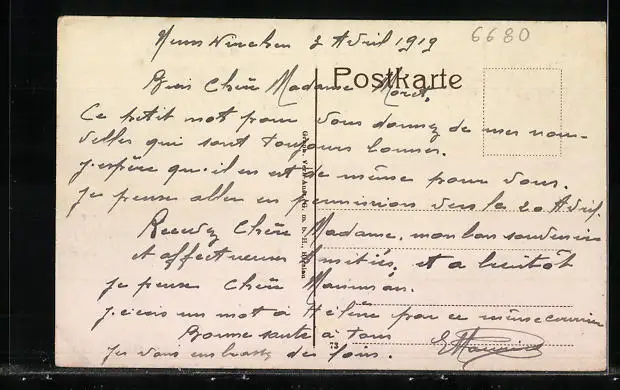 Neun Kirchen 2 Avril 1919
6680
Bien Chère Madame Moret,
Postkarte
Ce petit mot pour vous donner de mes nou-
velles qui sont toujours bonnes.
j'espère qu'il en est de même pour vous.
Je pense aller en permission vers le 20 Avril.
Recevez Chère Madame, mon bon souvenir
et affectueuses amitiés, et a bientôt
je pense Chère Maman.
j'écris un mot à Hélène par ce même courrier
Bonne santé à tous
Je vous embrasse de loin.
Graph. Verl.-Anst. G. m. b. H., Breslau
73